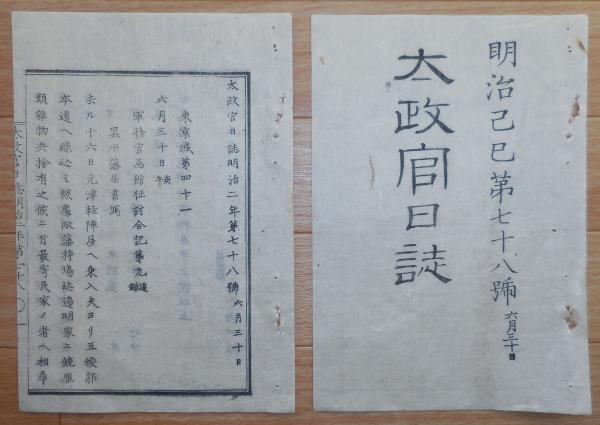 明治己巳第七十八號 六月三十日
太政官日誌
太政官日誌明治二年第七十八號 六月三十日
東京城第四十一
六月三十日 庚午
軍務官函館征討合記第九
黒石藩届書寫
去ル十六日元津軽陣屋ヘ乗入夫ヨリ五稜郭
本道ヘ繰込
候ニ付最寄民家ノ者ヘ相尋
太政官日誌明治二年第七十八